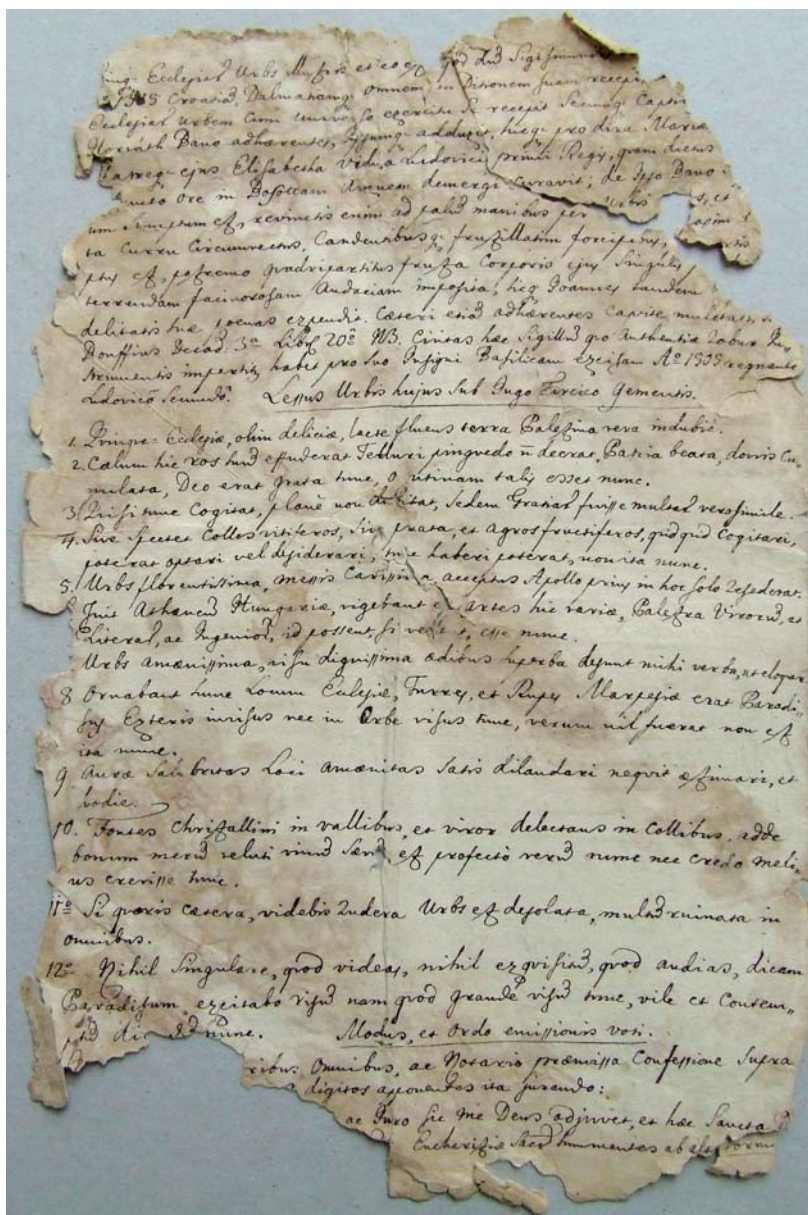 Ecclesiae Urbs et eo qd Sigismund
Croatiã, Dalmatiamq; omnem in Ditionem suam recepi
Ecclesias Urbem cum universo exercitu se recepit secumq; Capti
Horváth Bano adhaerentes, Ipsumq; adduxit, hicq; pro dira Mariae
ejus Elisabetha Vidua Ludovici primi Regis, quam dictus
ore in Bosottam Amnem demergi curavit; de Ipso Bano
um sumptum est, revinctis enim ad palũ manibus per Urbis
ta Curru Circumvectus, Candentibusq; frustillatim forcipibus,
ptus est, postremo quadripartitus frusta Corporis ejus Singulis
terrendam facinorosam Audaciam imposita, hicq; Joannes tandem
delitatis suae poenas expendit. Caeteri etiã adhaerentes Capite mulctati
Bonffius Decad. 3a Libro 20o NB. Civitas haec Sigillũ pro Authentiae Robur In
strumentis impertiri habet pro suo Insigni Basilicam excisam Ao 1509 regnante
Ludovico Secundo. Lessus Urbis hujus Sub Jugo Turcico Gementis.
1. Quinque Ecclesiae, olim deliciae, lacte fluens terra Palestina vera indubie.
2. Caelum hic ros suũ effuderat Telluri pinguedo ñ deerat, Patria beata, donis Cu-
mulata, Deo erat grata tunc, o utinam talis esset nunc.
3. Quisi tunc Cogitat, planè non dubitat, Sedem Gratiarũ fuisse multũ verosimile.
4. Sive spectes Colles vitiferos, sive prata, et agros fructiferos, quidquid Cogitari,
poterat optari vel desiderari, tunc haberi poterat, non ita nunc.
5. Urbs florentissima, messis Carissima, acceptus Apollo prius in hoc solo resederat.
Fuit Athaeneũ Hungariae, vigebant et artes hic variae, Palestra Virorũ, et
Literarũ, ac Ingeniorũ, id possent, si vellent, esse nunc.
Urbs amaenissima, visu dignissima aedibus superba desunt mihi verba, ut eloquar
8 Ornabant hunc Locum Eclesiae, Turres, et Rupes Marpesiae erat Paradi-
sus Exteris invisus nec in Orbe visus tunc, verum nil fuerat non est
ita nunc.
9 Aurae Salubritas Loci Amaenitas Satis dilaudari nequit aestimari, et
hodie.
10. Fontes Christallini in vallibus, et viror delectans in Collibus, adde
bonum merũ veluti vinũ est profectò verũ nunc nec credo meli,,
us crevisse tunc.
11o Si quaeris caetera, videbis Rudera Urbs est desolata, multũ ruinata in
omnibus.
12o Nihil Singulare, quod videas, nihil exquisitũ, quod audias, dicam
Paradisum excitabo risũ nam quod grande visũ tunc, vile et Contem,,
ptũ nunc. Modus, et Ordo emissionis voti.
ribus Omnibus, ac Notario praemissa Confessione Supra
digitos aponentes ita jurando:
ac Juro sic me Deus adjuvet, et haec Sancta
Eucheristiae Sacr